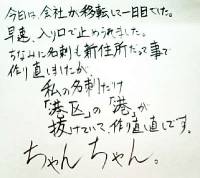 今日は、会社が移転して一日目でした。
早速、入り口で止められました。
ちなみに名刺も新住所だって事で
作り直しましたが、
私の名刺だけ
「港区」の「港」が
抜けていて、作り直し直しです。
ちゃんちゃん。